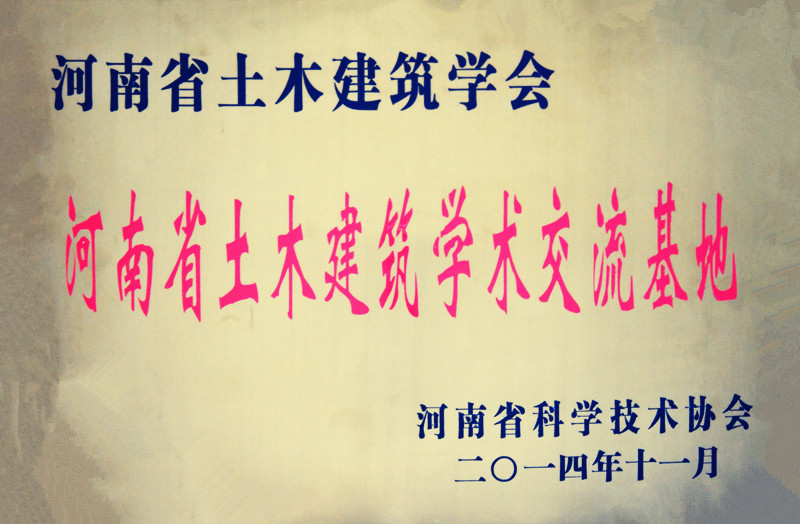 河南省土木建筑学会
河南省土木建筑学术交流基地
河南省科学技术协会
二〇一四年十一月